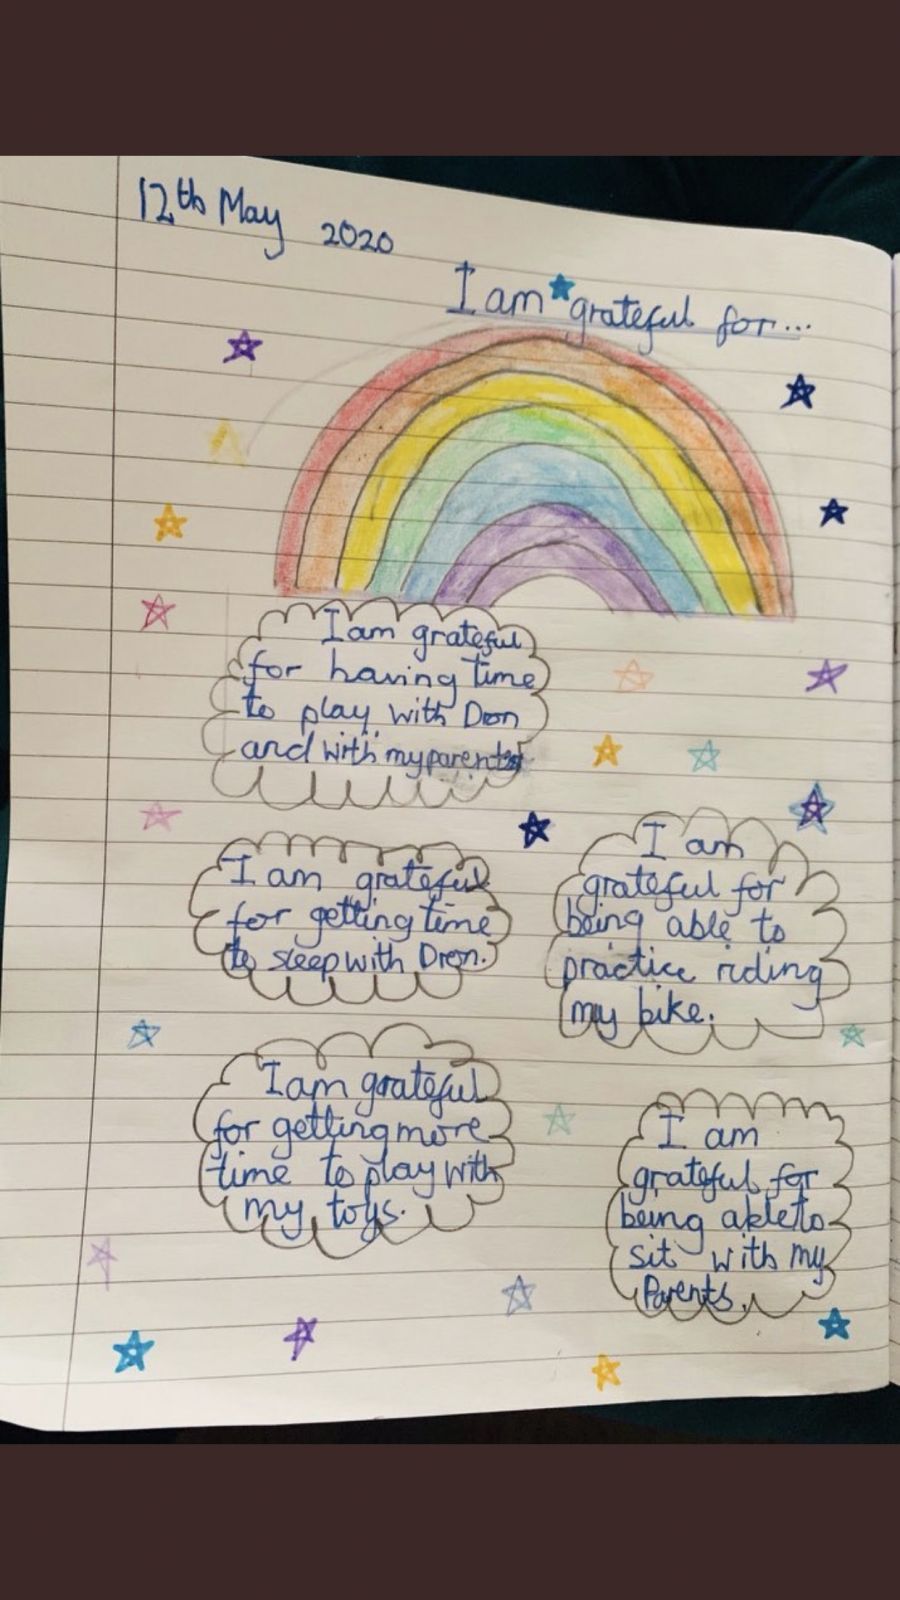 12th May 2020
I am grateful for...
I am grateful
for having time
to play with Dron
and with my parents
I am grateful
for getting time
to sleep with Dron.
I am
grateful for
being able to
practice riding
my bike.
I am grateful
for getting more
time to play with
my toys.
I am
grateful for
being able to
sit with my
Parents.